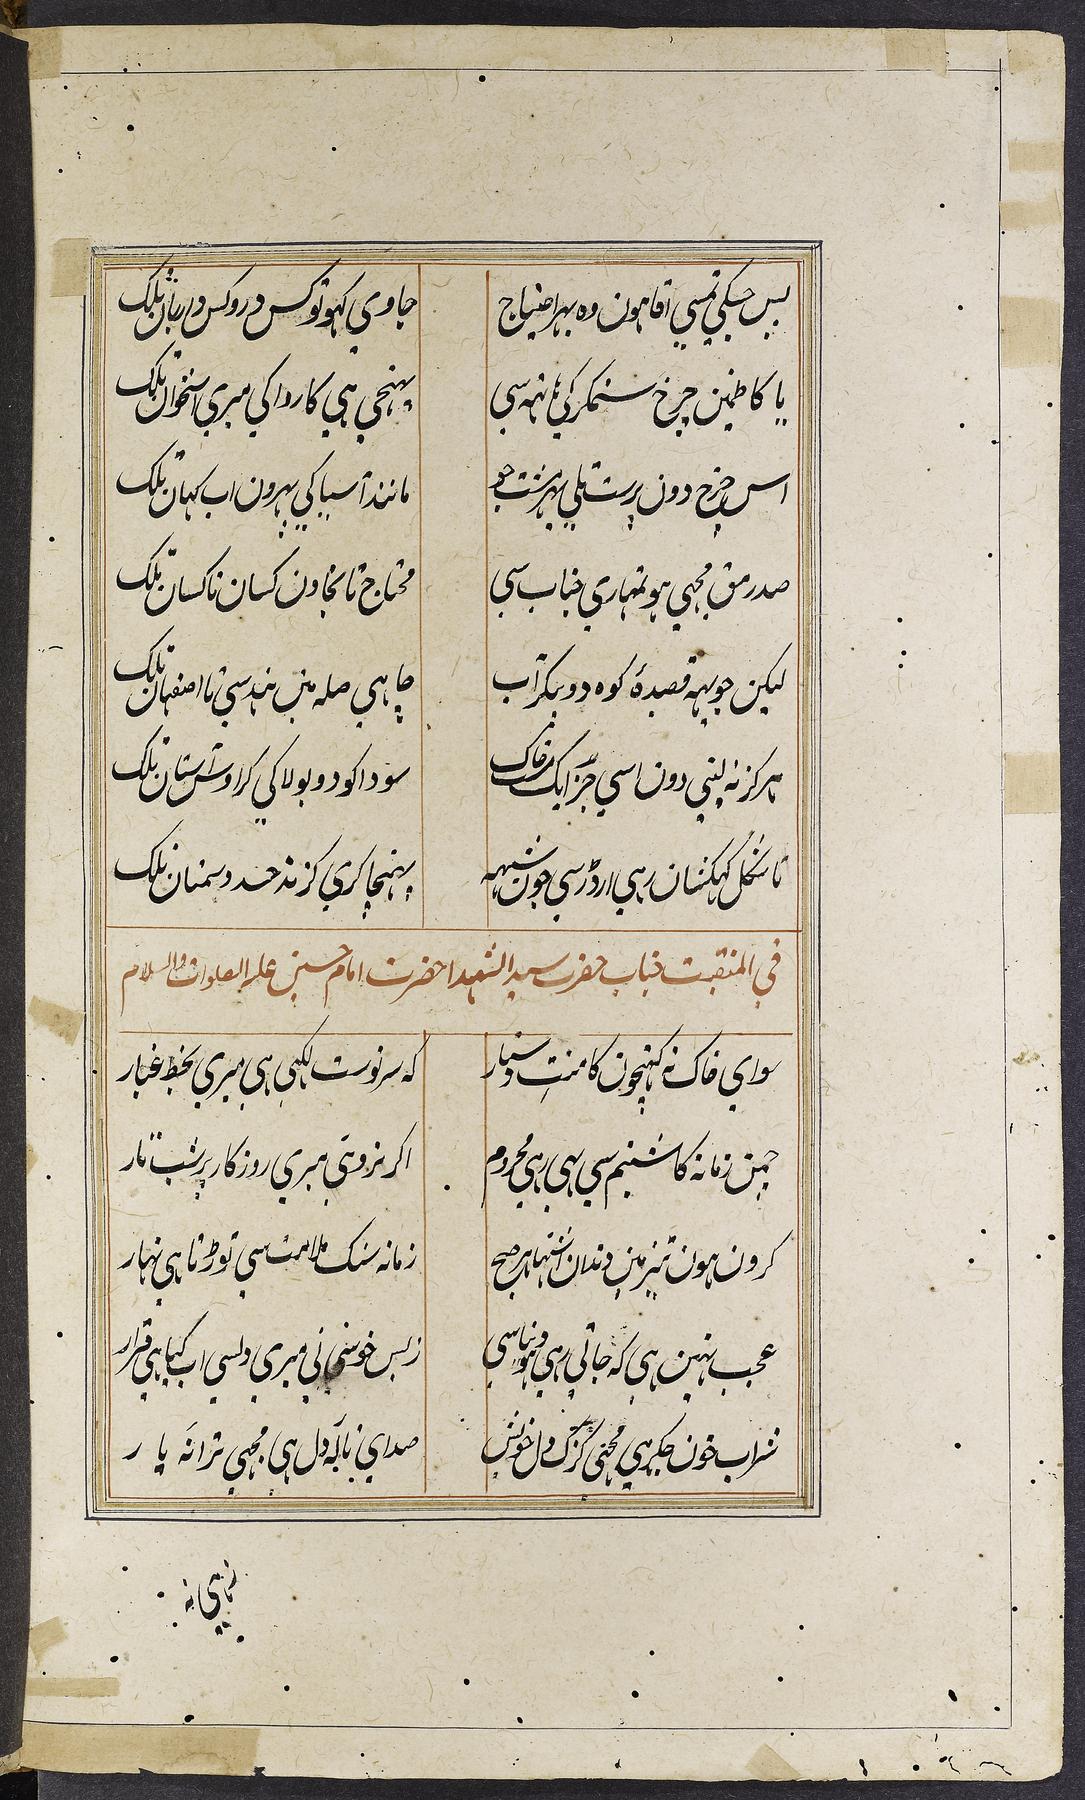 بس جسکی تمسی اقا هون وه بهر احتیاج جاوی کهو تو کس در و کس در بان تلک
یا کاظمین چرخ ستمکر کی هاتهه سی پهنچی هی کارد اکی میری استخوان تلک
اس چرخ دون پرست تلی بهر مشت جو مانند آسیا کی پهرون اب کهان تلک
صدر مق مجهی هو تمهاری جناب سی محتاج تا نجاون کسان ناکسان تلک
لیکن جو یهه قصیدهٔ کوه دو بکر آب چاهی صله مین هند سی تا اصفهان تلک
هرکز نه لینی دون اسی جز ایک مشت خاک سودا کو دو بولا کی کر اوس آستان تلک
تا شکل کهکشان رهی اژدر سی جون شبیهه پهنچا کری کزند حسد دشمنان تلک
فی المنقبت جناب حضرت سید الشهدا حضرت امام حسین علیه الصلوات والسلام
سوای خاک نه کهینچون کا منت دستار که سرنوشت لکهی هی میری بخط غبار
چمن زمانه کا شبنم سی بهی رهی محروم اکر نه رووی میری روزکار پر شب تار
کرون هون تیز مین دندان اشتها هر صبح زمانه سنک ملامت سی توڑتا هی نهار
عجب نهین هی که جاتی رهی هو دنیا سی زبس خوشی نی میری دلسی اب کیا هی فرار
شراب خون جکر هی مجهی کزک دل خویش صدای نالهٔ دل هی مجهی ترانهٔ یار